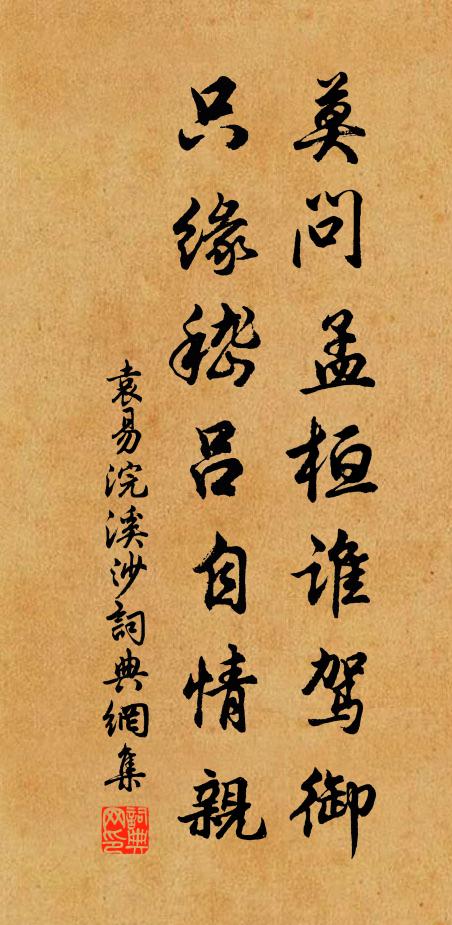 莫问孟桓谁驾御
只缘嵇吕自情親
袁易浣溪沙詞典網集
詞典網印